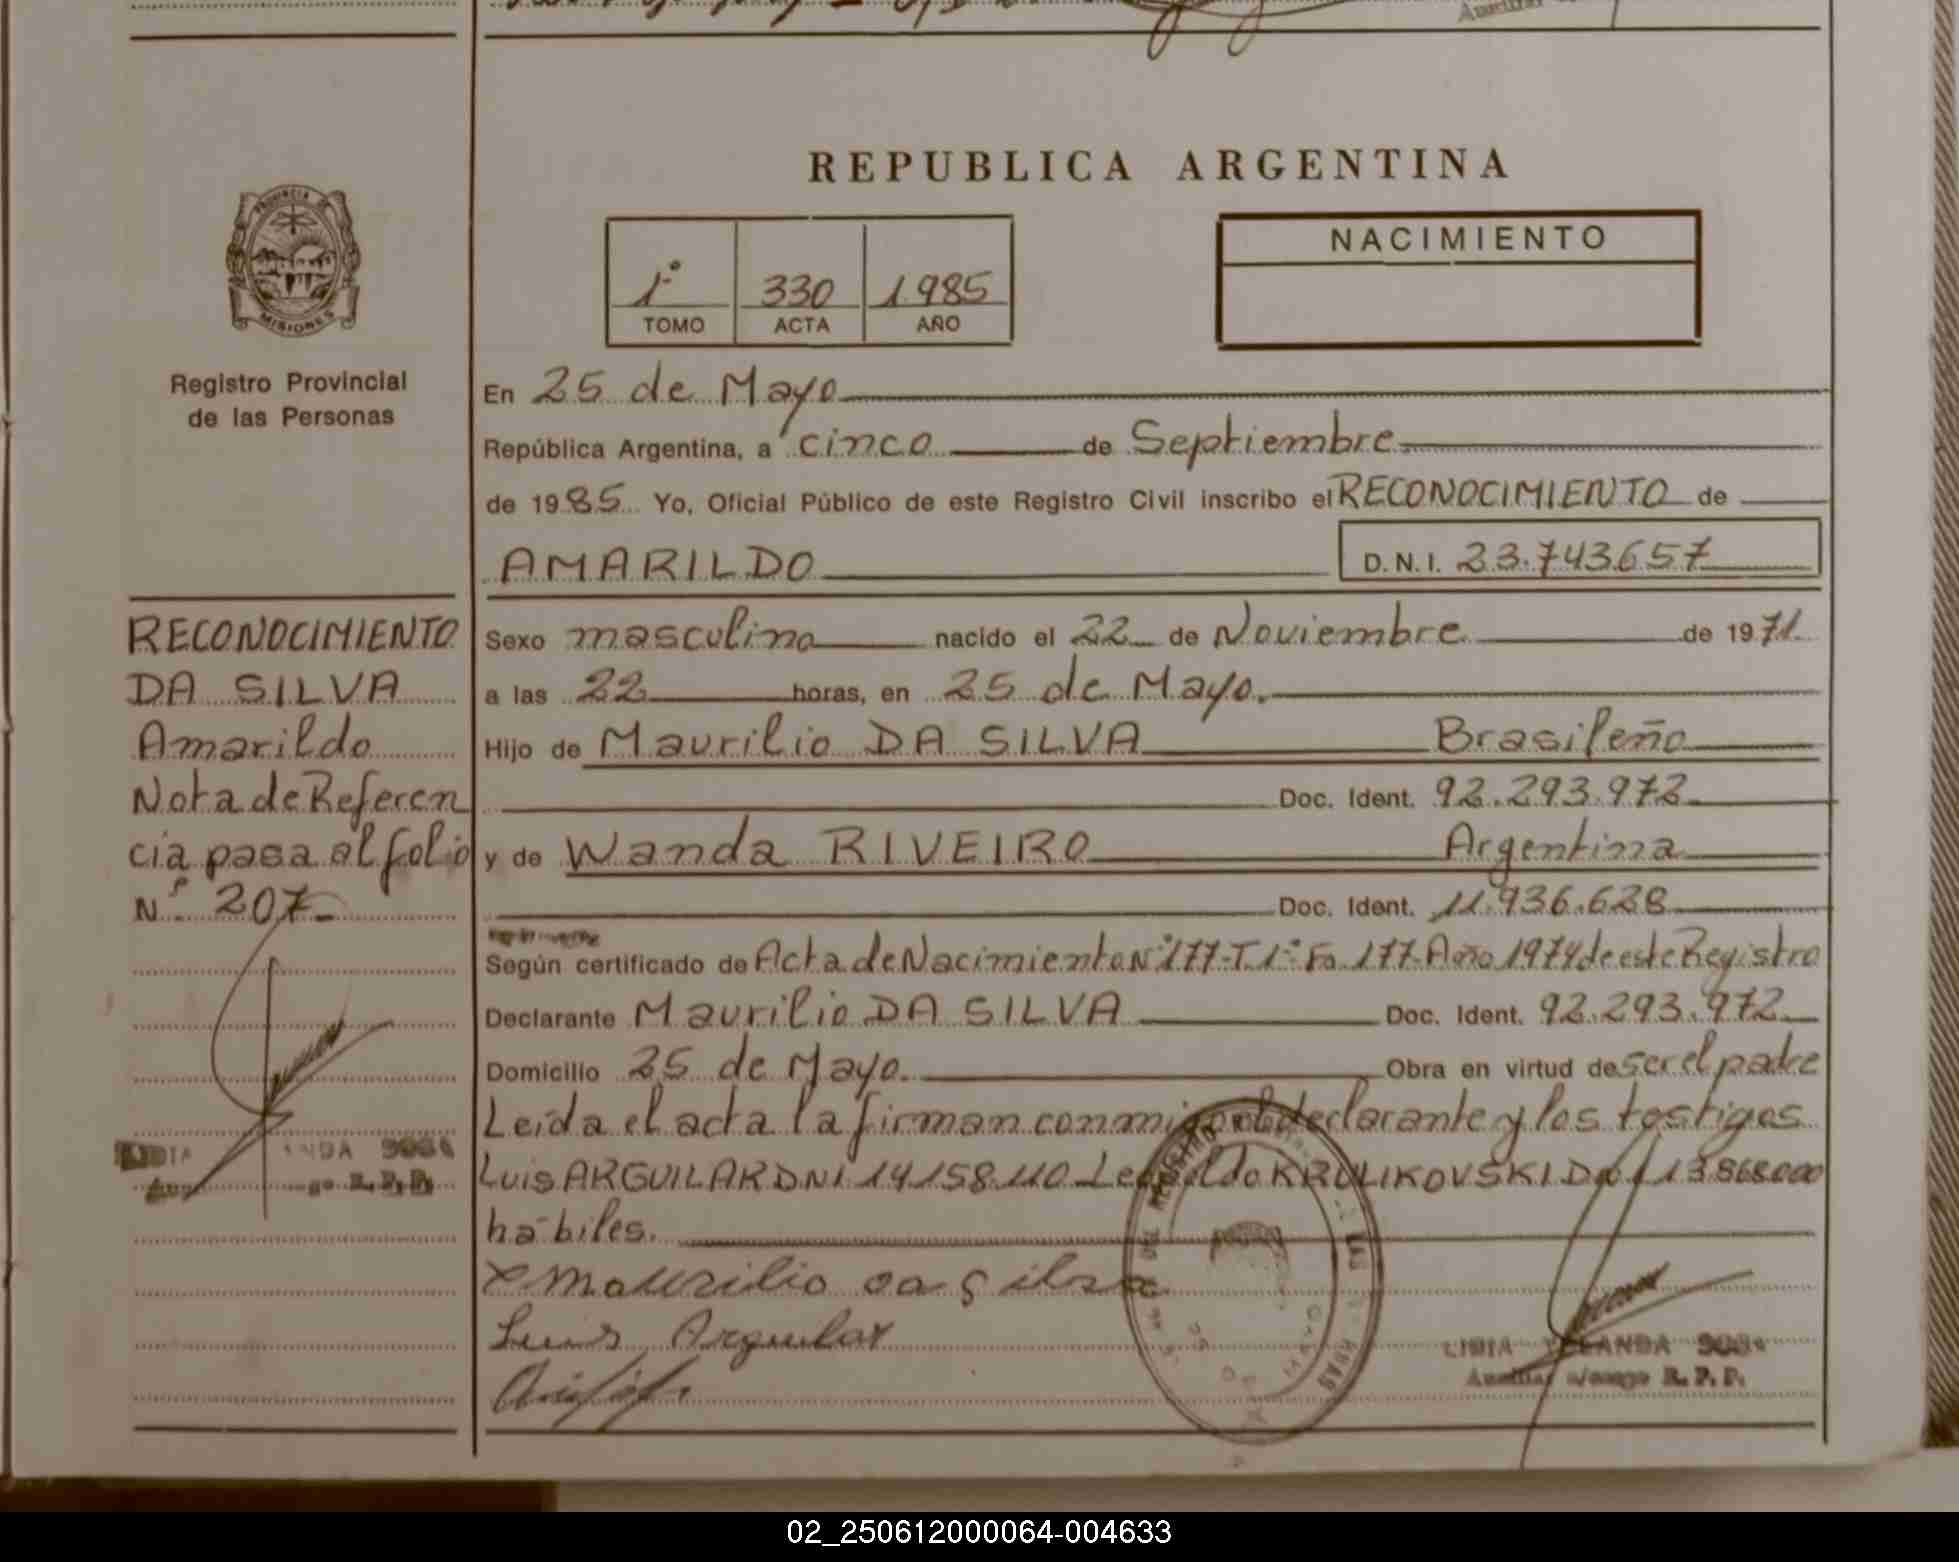 REPUBLICA ARGENTINA
PROVINCIA DE
MISIONES
Registro Provincial
de las Personas
1º 330 1985
TOMO ACTA AÑO
NACIMIENTO
En 25 de Mayo
República Argentina, a cinco de Septiembre
de 1985 Yo, Oficial Público de este Registro Civil inscribo el RECONOCIMIENTO de
AMARILDO D.N.I. 23.743.657
RECONOCIMIENTO
DA SILVA
Amarildo
Nota de Referen
cia pasa al folio
Nº 207
Sexo masculino nacido el 22 de Noviembre de 1971
a las 22 horas, en 25 de Mayo.
Hijo de Maurilio DA SILVA Brasileño
Doc. Ident. 92.293.972
y de Wanda RIVEIRO Argentina
Doc. Ident. 11.936.628
Según certificado de Acta de Nacimiento Nº 177-T.1º Fo. 177-Año 1974 de este Registro
Declarante Maurilio DA SILVA Doc. Ident. 92.293.972
Domicilio 25 de Mayo. Obra en virtud de ser el padre
Leída el acta la firman conmigo el declarante y los testigos
Luis ARGUILAR DNI 14.158.110 Leopoldo KRULIKOVSKI DNI 13.868.000
hábiles.
Maurilio da Silva
Luis Arguilar
LIDIA YOLANDA
Auxiliar a/cargo R.P.P.
02_250612000064-004633